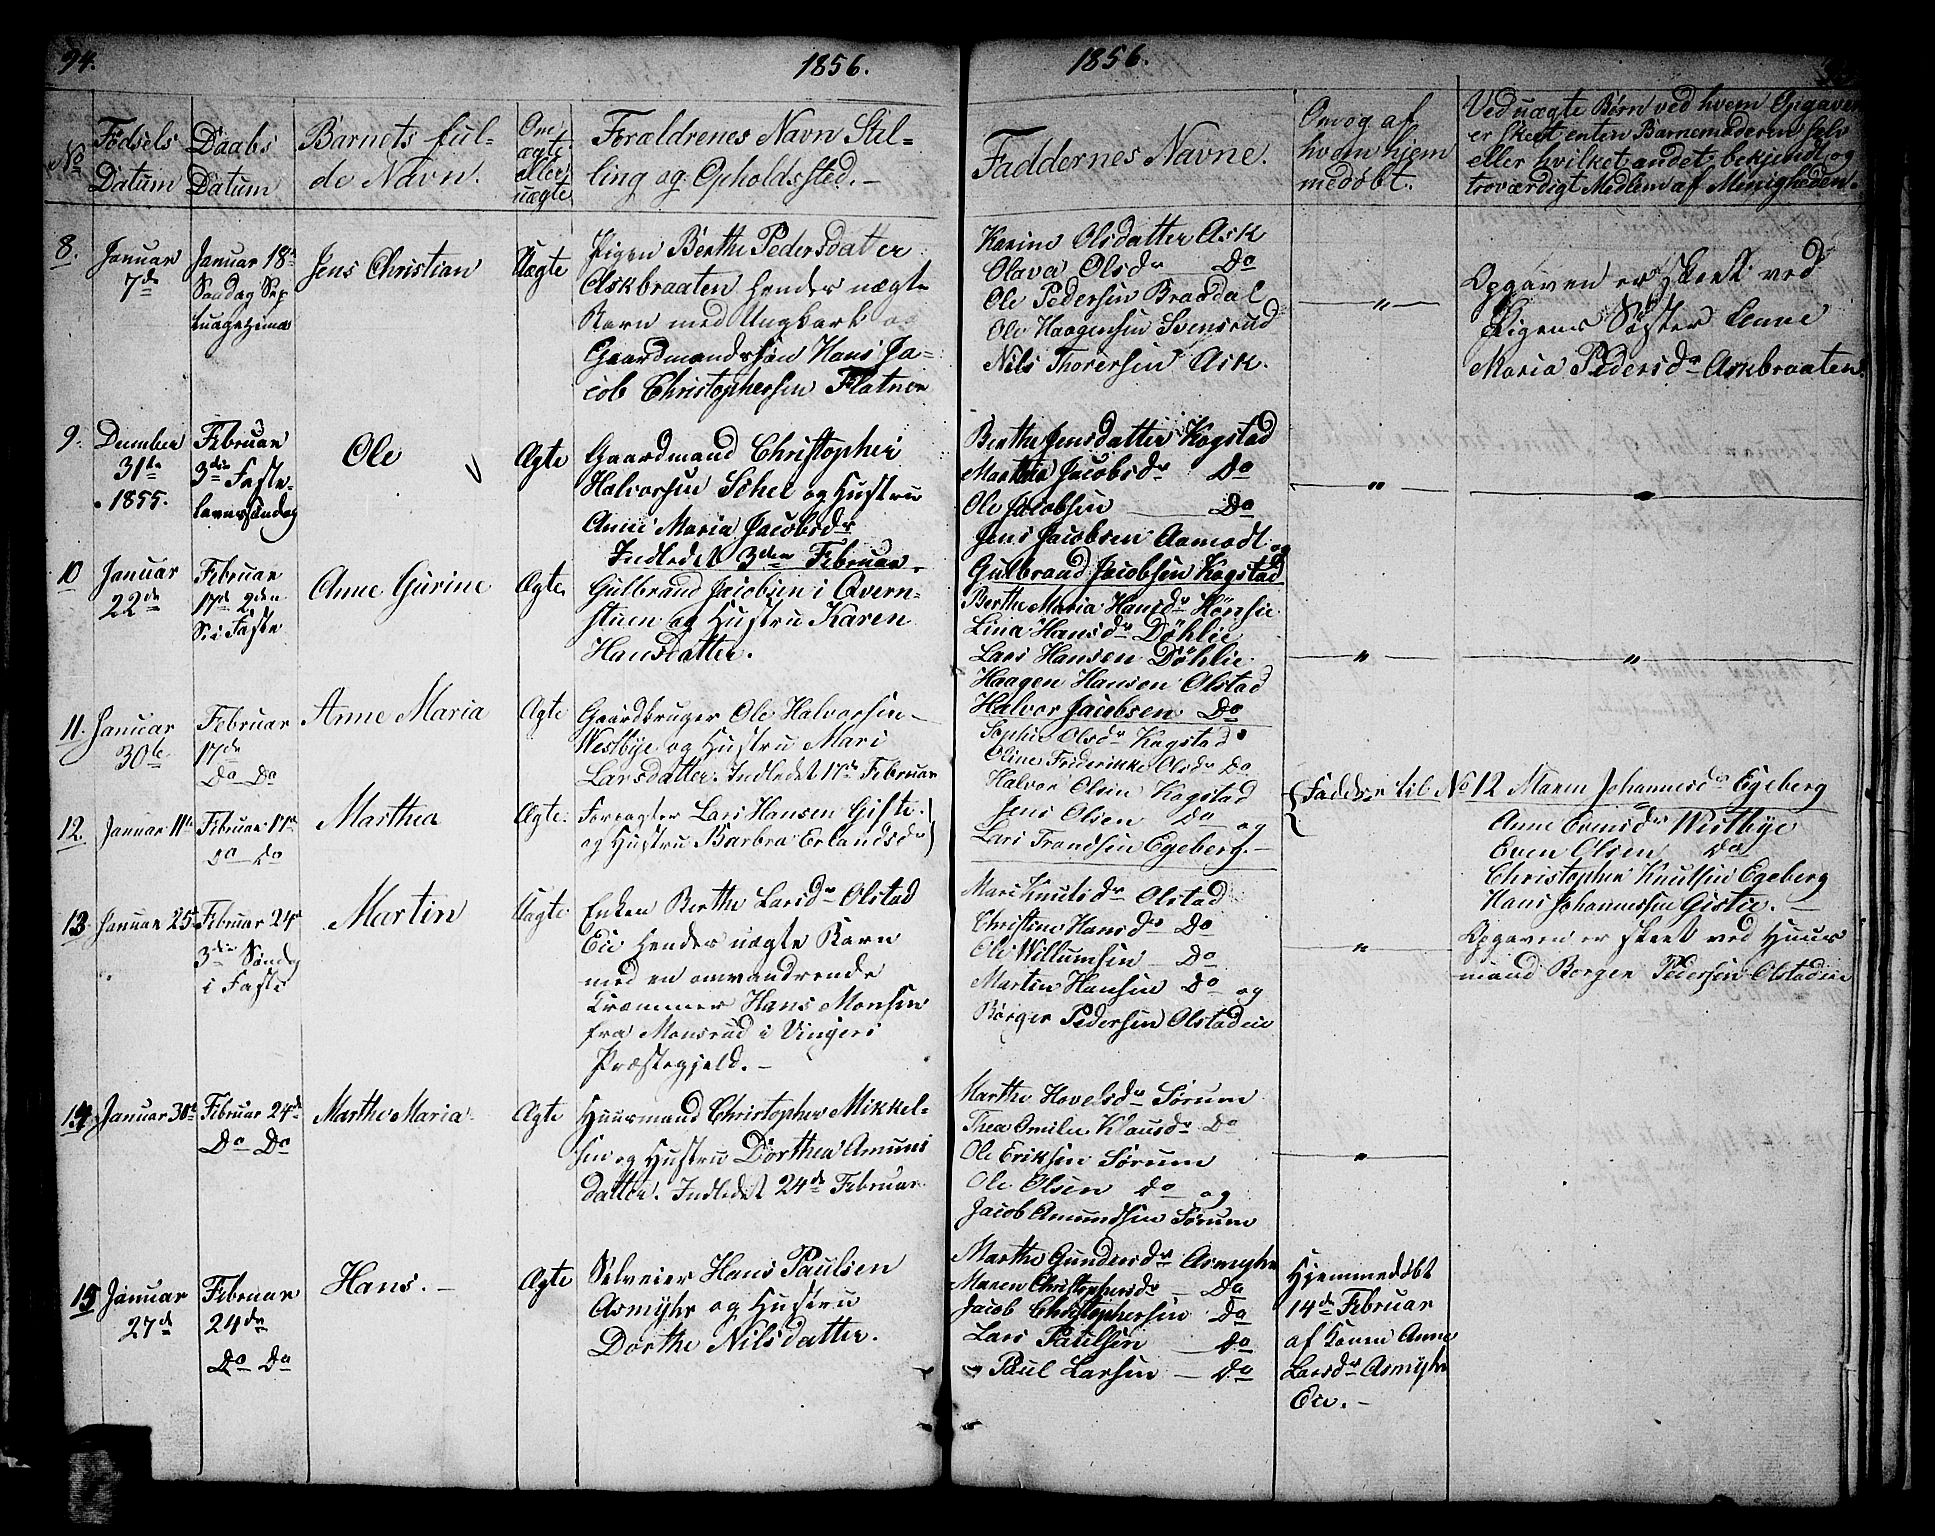 94.
1856.
No
Fødsels Datum
Daabs Datum
Barnets ful-
de Navn.
Om
ægte
eller
uægte
Forældrenes Navn Stil-
ling og Opholdssted. -
8.
Januar
7de
Januar 18de
Søndag Sep
tuagezima
Jens Christian
Uægte
Pigen Berthe Pedersdatter
Askbraaten hendes uægte
Barn med Ungkarl og
Gaardmandssøn Hans Ja-
cob Christophersen Flatner
9.
December
31te
1855.
Februar
3die Faste-
lavnssøndag
Ole
Ægte
Gaardmand Christopher
Halvorsen Schei og Hustru
Anne Maria Jacobsdr
Indledet 3den Februar.
10
Januar
22de
Februar
17de 2den
S. i Faste
Anne Gurine
Ægte.
Gulbrand Jacobsen i Qvern-
stuen og Hustru Karen
Hansdatter.
11.
Januar
30te
Februar
17de
Do Do
Anne Maria
Ægte
Gaardbruger Ole Halvorsen
Westbye og Hustru Mari
Larsdatter. Indledet 17de Februar
12.
Januar 11te
Februar 17de
Do Do
Marthea
Ægte.
Forpagter Lars Hansen Gistie
og Hustru Barbra Erlandsdr
13.
Januar 25de
Februar 24de
3die Søndag
i Faste
Martin
Uægte
Enken Berthe Larsdr Olstad
Eie hendes uægte Barn
med en omvandrende
Kræmmer Hans Monsen
fra Monsrud i Vingers
Præstegjeld. -
14.
Januar 30te
Februar 24de
Do Do
Marthe Maria
Ægte
Huusmand Christopher Mikkel-
sen og Hustru Dorthea Amunds
datter. Indledet 24de Februar
15
Januar
27de
Februar
24de
Do Do
Hans. -
Ægte
Selveier Hans Paulsen
Asmyhr og Hustru
Dorthe Nilsdatter.
1856.
Faddernes Navne.
Om og af
hvem hjem
medøbt.
Ved uægte Børn ved hvem Opgaven
er skeet enten Barnemoderen selv
eller hvilket andet bekjendt og
troværdigt Medlem af Menigheden.
Karine Olsdatter Ask
Olava Olsdr Do
Ole Pedersen Braadal
Ole Haagensen Svensrud
Nils Thorersen Ask.
"
Opgaven er skeet ved
Pigens Søster Anne
Maria Pedersdr Askbraaten.
Berthe Jensdatter Kogstad
Marthe Jacobsdr Do
Ole Jacobsen Do
Jens Jacobsen Aamodt og
Gulbrand Jacobsen Kogstad
"
Berthe Maria Hansdr Hønsie
Lina Hansdr Døhlie
Lars Hansen Døhlie
Haagen Hansen Olstad
Halvor Jacobsen Do
"
"
Sophie Olsdr Kogstad
Oline Frederikke Olsdr Do
Halvor Olsen Kogstad
Jens Olsen Do og
Lars Trondsen Egeberg. -
Faddere til No 12 Maren Johannesdr Egeberg
Anne Evensdr Westbye
Even Olsen Do
Christopher Knudsen Egeberg
Hans Johannessen Gistie. -
Mari Knutsdr Olstad
Christine Hansdr Do
Ole Willumsen Do
Martin Hansen Do og
Børger Pedersen Olstadeie
"
Opgaven er skeet ved Huus
mand Borger Pedersen Olstadeie
Marthe Hovelsdr Sørum
Thea Emilie Klausdr Do
Ole Eriksen Sørum
Ole Olsen Do og
Jacob Amundsen Sørum
"
Marthe Gundersdr Asmyhr
Maren Christophersdr Do
Jacob Christophersen Do
Lars Paulsen Do
Paul Larsen Do
Hjemmedøbt
14de Februar
af Konen Anne
Larsdr Asmyhr
Eie. -